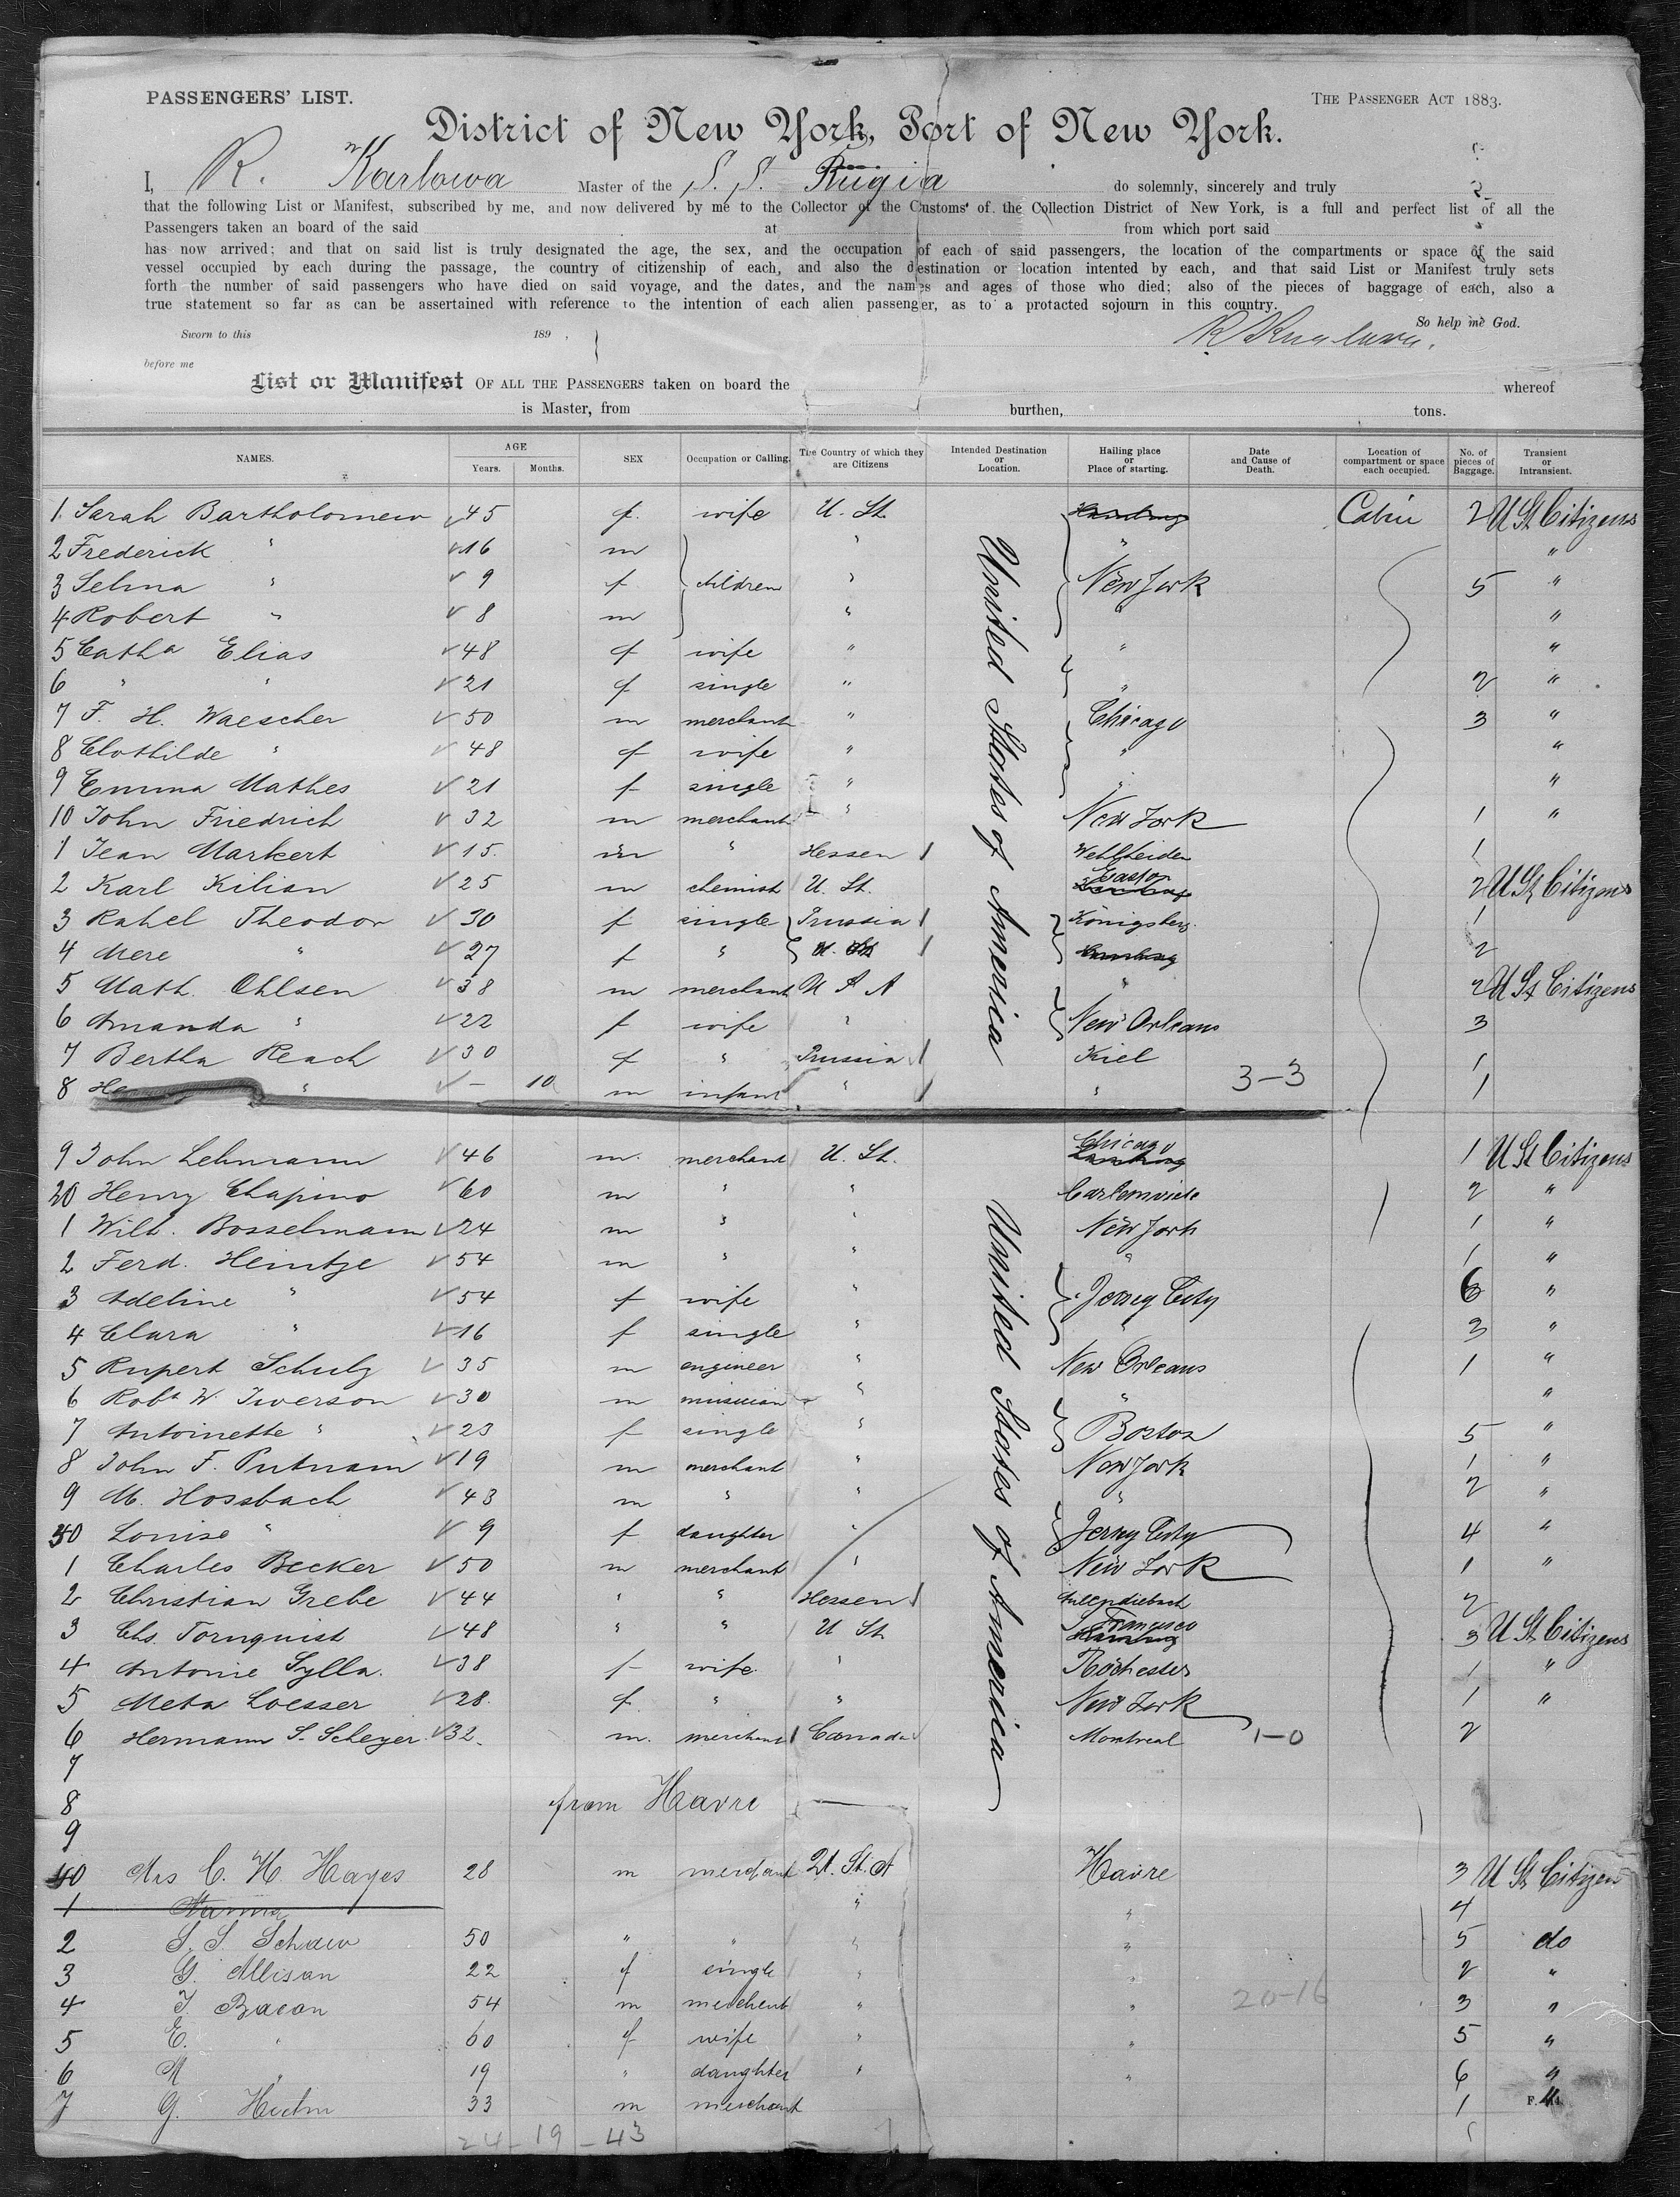 PASSENGERS' LIST.
THE PASSENGER ACT 1883.
District of New York, Port of New York.
I, R. Karlowa Master of the S. S. Rugia do solemnly, sincerely and truly
that the following List or Manifest, subscribed by me, and now delivered by me to the Collector of the Customs of the Collection District of New York, is a full and perfect list of all the
Passengers taken an board of the said at from which port said
has now arrived; and that on said list is truly designated the age, the sex, and the occupation of each of said passengers, the location of the compartments or space of the said
vessel occupied by each during the passage, the country of citizenship of each, and also the destination or location intented by each, and that said List or Manifest truly sets
forth the number of said passengers who have died on said voyage, and the dates, and the names and ages of those who died; also of the pieces of baggage of each, also a
true statement so far as can be ascertained with reference to the intention of each alien passenger, as to a protacted sojourn in this country.
So help me God.
Sworn to this 189 ,
R Karlowa.
before me
List or Manifest OF ALL THE PASSENGERS taken on board the whereof
is Master, from burthen, tons.
NAMES. AGE Years. Months. SEX Occupation or Calling. The Country of which they are Citizens Intended Destination or Location. Hailing place or Place of starting. Date and Cause of Death. Location of compartment or space each occupied. No. of pieces of Baggage. Transient or Intransient.
United States of America
1 Sarah Bartholomew 45 f. wife U. St. Hamburg Cabin 2 U St Citizens
2 Frederick " 16 m " " "
3 Selma " 9 f children " New York 5 "
4 Robert " 8 m " "
5 Catha Elias 48 f wife " " "
6 " " 21 f single " " 2 "
7 F. H. Waescher 50 m merchant " Chicago 3 "
8 Clothilde " 48 f wife " " "
9 Emma Mathes 21 f single " " "
10 John Friedrich 32 m merchant " New York 1 "
1 Jean Markert 15. m " Hessen Wehlheiden 1
2 Karl Kilian 25 m chemist U. St. Easton Hamburg 2 U St Citizens
3 Rahel Theodor 30 f single Prussia Königsberg. 1
4 Mere " 27 f " U. St. Hamburg 2
5 Math. Ohlsen 38 m merchant U S A " 2 U St Citizens
6 Amanda " 22 f wife " New Orleans 3
7 Bertha Reach 30 f " Prussia Kiel 1
8 " - 10 m infant " " 3-3 1
United States of America
9 John Lehmann 46 m. merchant U. St. Chicago Hamburg 1 U St Citizens
20 Henry Chapino 60 m " " 2 "
1 Wilh. Bosselmann 24 m " " New York 1 "
2 Ferd. Heintze 54 m " " " 1 "
3 Adeline " 54 f wife " Jersey City 6 "
4 Clara " 16 f single " " 3 "
5 Rupert Schulz 35 m engineer " New Orleans 1 "
6 Robt W. Iwerson 30 m musician " " "
7 Antoinette " 23 f single " Boston 5 "
8 John F. Putnam 19 m merchant " New York 1 "
9 M. Hossbach 43 m " " " 2 "
30 Louise " 9 f daughter " Jersey City 4 "
1 Charles Becker 50 m merchant " New York 1 "
2 Christian Grebe 44 " " Hessen 2
3 Chs. Tornquist 48 " " U St. S. Francisco Hamburg 3 U St Citizens
4 Antonie Sylla. 38 f wife. " Rochester 1 "
5 Meta Loesser 28. f. " " New York 1 "
6 Hermann S. Scheyer. 32. m. merchant Canada Montreal 1-0 2
7
8 from Havre
9
40 Mrs C. H. Hayes 28 m merchant U. St. A Havre 3 U St Citizen
1 " " 4
2 S. S. Schaw 50 " " " " 5 do
3 G. Allison 22 f single " " 2 "
4 J. Bacon 54 m merchent " " 20-16 3 "
5 E. " 60 f wife " " 5 "
6 M " 19 " daughter " " 6 "
7 G. 33 m merchant 1 "
24-19-43